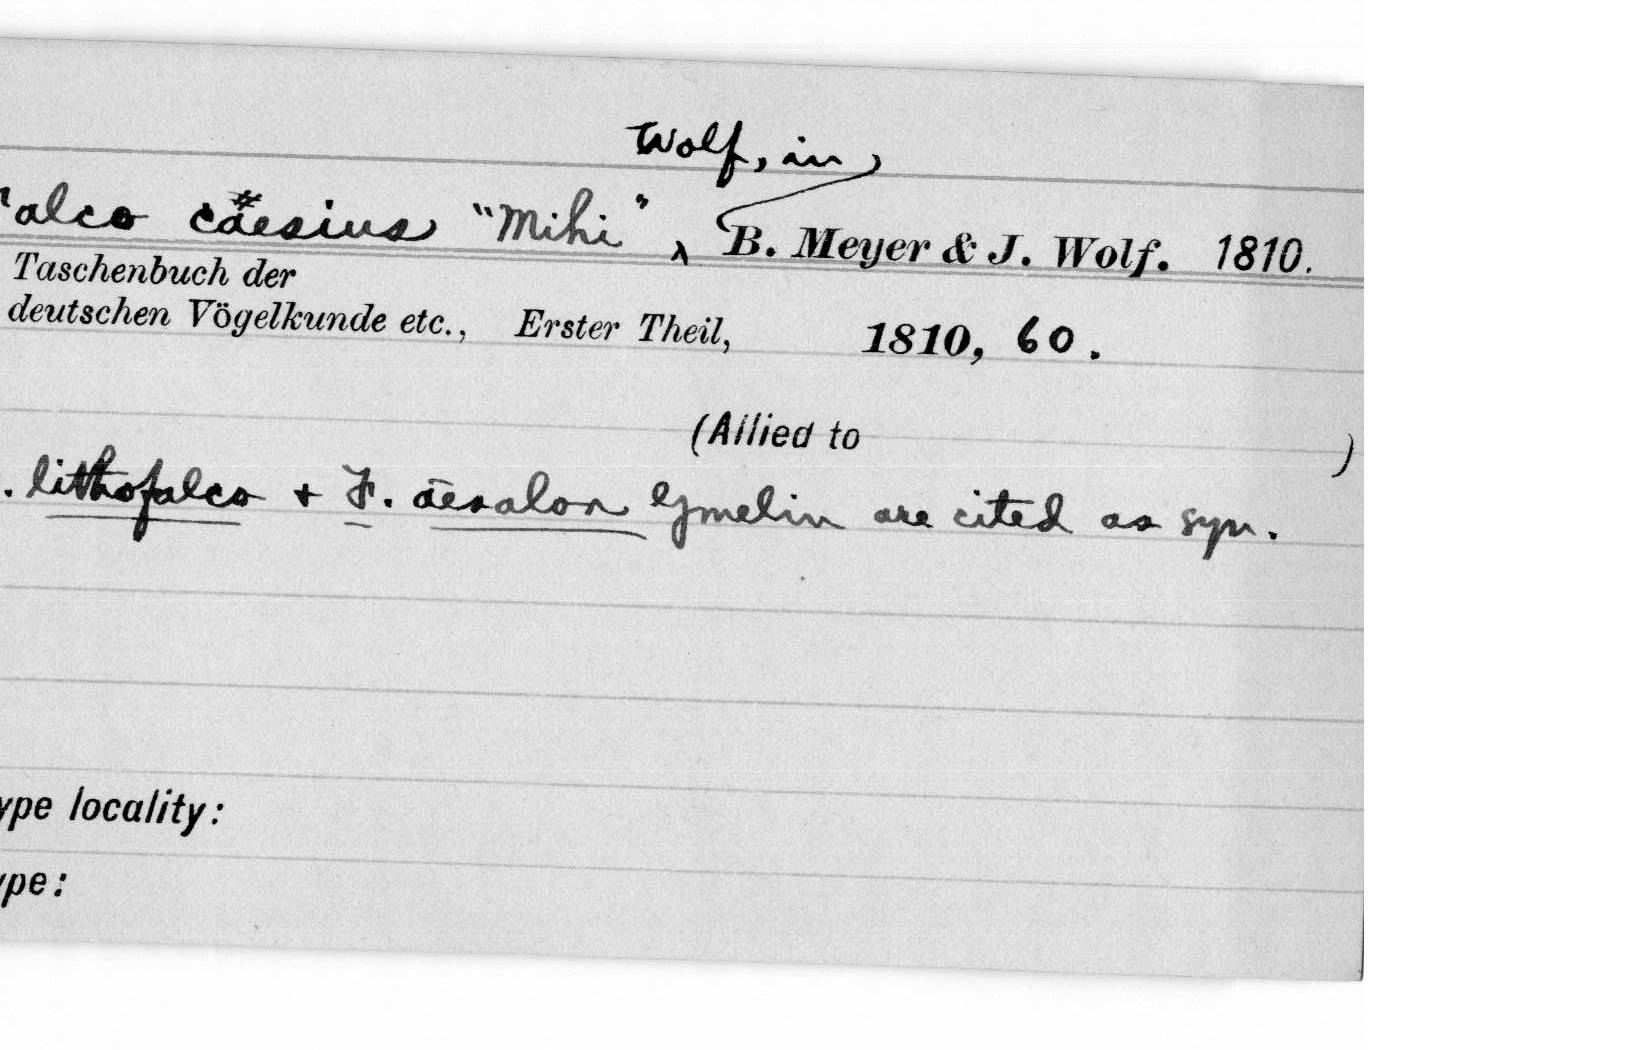 Wolf, in
alco caesius "Mihi" , B. Meyer & J. Wolf. 1810.
Taschenbuch der
deutschen Vögelkunde etc., Erster Theil, 1810, 60.
(Allied to )
. lithofalco + F. aesalon Gmelin are cited as syn.
ype locality:
ype: